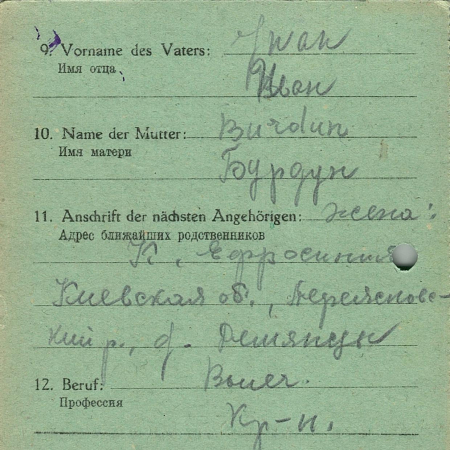 9. Vorname des Vaters: Iwan
Имя отца Иван
10. Name der Mutter: Burdun
Имя матери Бурдун
11. Anschrift der nächsten Angehörigen: жена:
Адрес ближайших родственников
К, Ефросиния
Киевская об., Переяслове-
кий р., д. Демянцы
12. Beruf: Bauer.
Профессия Кр-н.